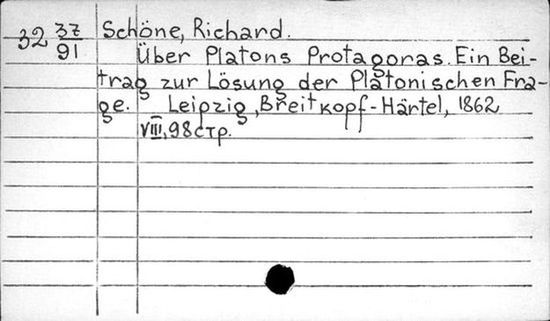 32 37/91 Schöne, Richard.
Über Platons Protagoras. Ein Bei-
trag zur Lösung der Platonischen Fra-
ge. Leipzig, Breitkopf-Härtel, 1862
VIII, 98 стр.